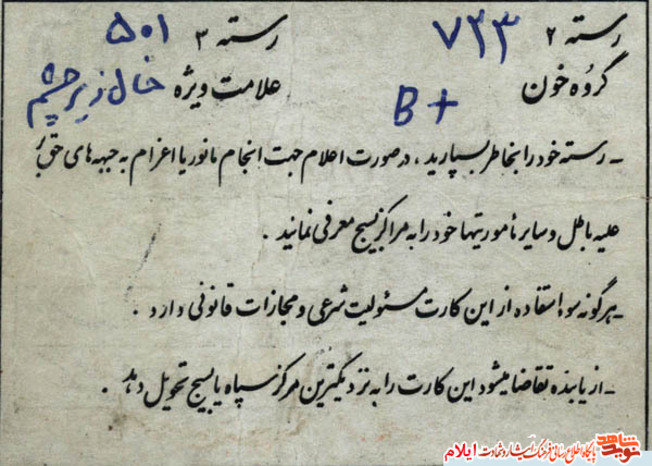 رسته ۲ ۷۳۳ رسته ۳ ۵۰۱
گروه خون B+ علامت ویژه خال زیر چشم
- رسته خود را بخاطر بسپارید ، در صورت اعلام جهت انجام مانور یا اعزام به جبهه های حق
علیه باطل و سایر مأموریتها خود را به مراکز بسیج معرفی نمائید .
- هرگونه سوء استفاده از این کارت مسئولیت شرعی و مجازات قانونی دارد .
- از یابنده تقاضا میشود این کارت را به نزدیکترین مرکز سپاه یا بسیج تحویل دهد .
نوید شاهد پایگاه اطلاع رسانی فرهنگ ایثار و شهادت ایلام